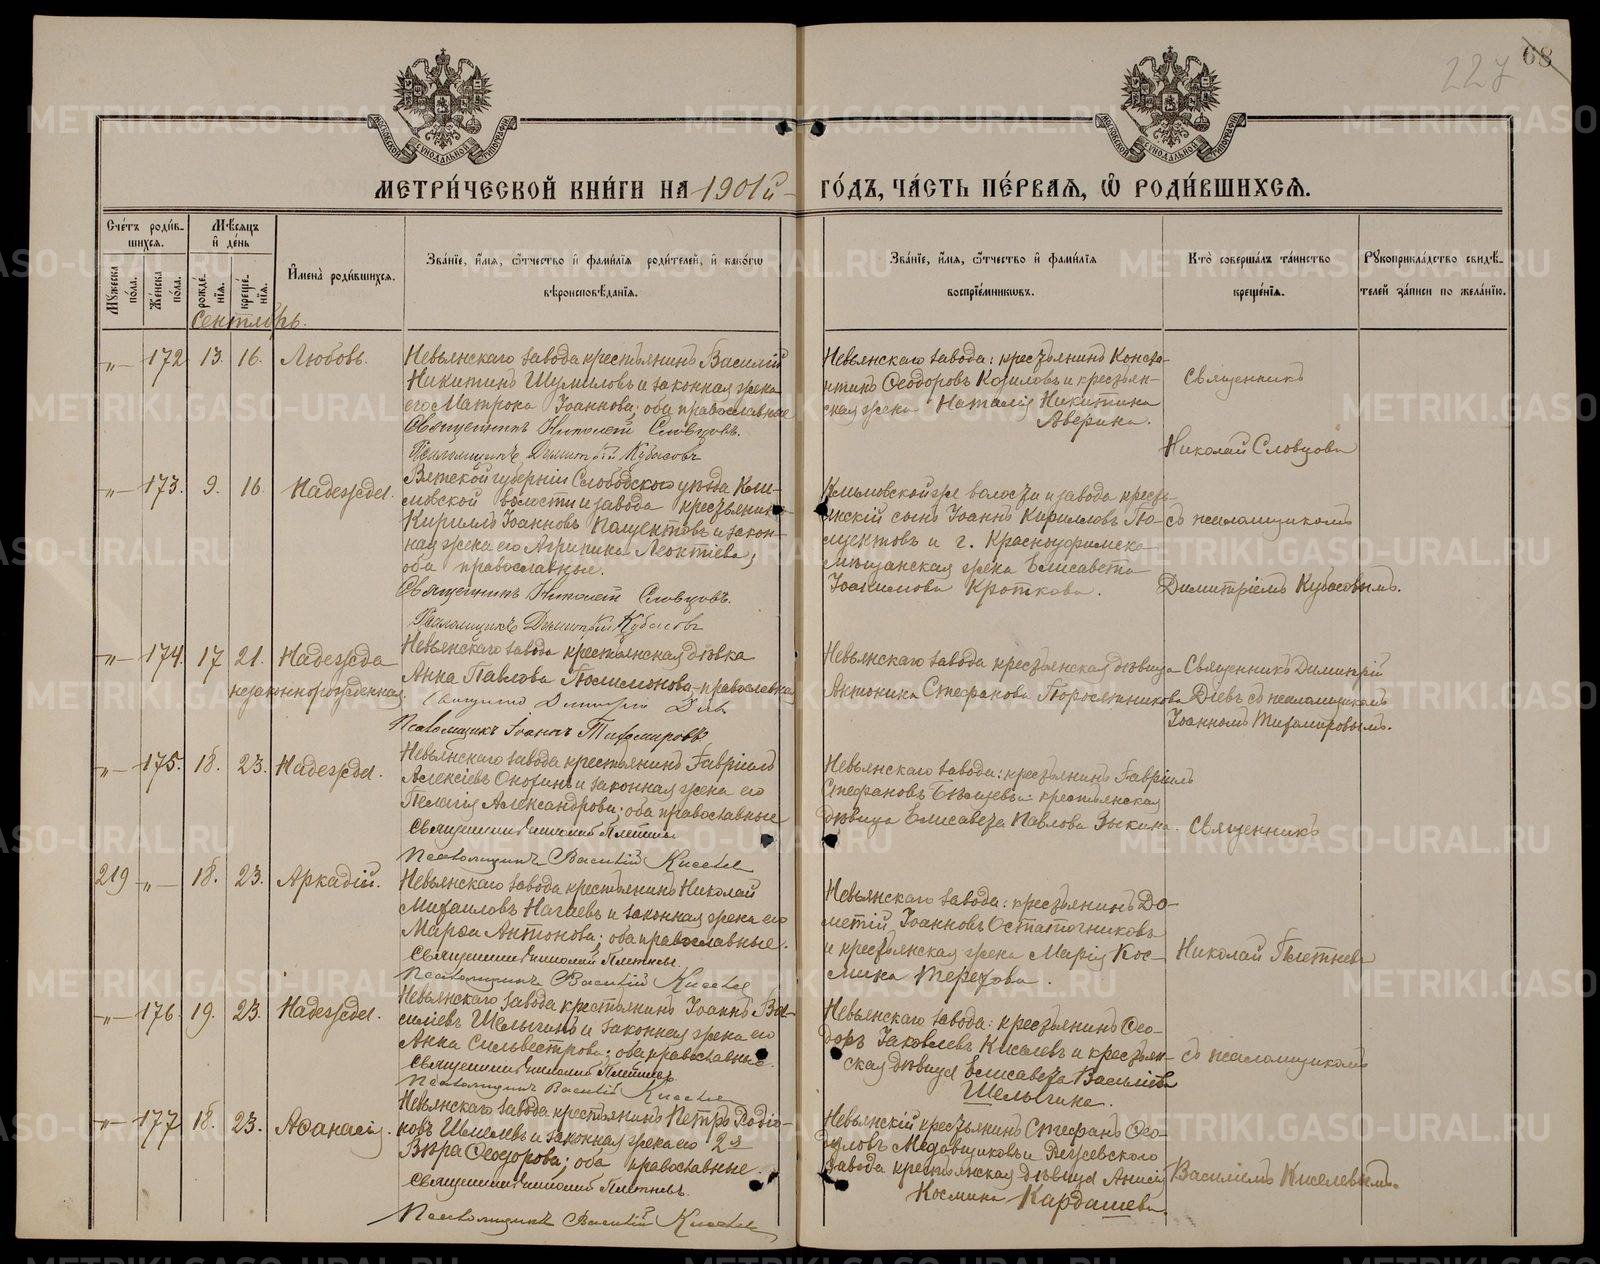 227 68
МОСКОВСКОЙ СѴНОДАЛЬНОЙ ТИПОГРАФІИ
МОСКОВСКОЙ СѴНОДАЛЬНОЙ ТИПОГРАФІИ
МЕТРИ́ЧЕСКОЙ КНИ́ГИ НА 1901й
ГО́ДЪ, ЧА́СТЬ ПЕ́РВАѦ, Ѡ҆ РОДИ́ВШИХСѦ.
Сче́тъ роди́в-
шихсѧ.
Мѣ́сѧцъ
и҆ де́нь
И҆мена̀ роди́вшихсѧ.
Зва́нїе, и҆́мѧ, ѻ҆́тчество и҆ фами́лїѧ роди́телей, и҆ како́гѡ
вѣроисповѣ́данїѧ.
Мꙋ́жеска
по́ла.
Же́нска
по́ла.
рожде́-
нїѧ.
креще́-
нїѧ.
Зва́нїе, и҆́мѧ, ѻ҆́тчество и҆ фами́лїѧ
воспрїе́мникѡвъ.
Кто̀ соверша́лъ та́инство
креще́нїѧ.
Рꙋкоприкла́дство свидѣ́-
телей за́писи по жела́нїю.
Сентябрь.
„ 172 13. 16. Любовь.
Невьянскаго завода крестьянинъ Василій
Никитинъ Шумиловъ и законная жена
его Матрона Іоаннова; оба православные
Священникъ Николай Словцовъ.
Псаломщикъ Димитрій Кубасовъ
Невьянскаго завода: крестьянинъ Конста-
нтинъ Ѳеодоровъ Козиловъ и крестьян-
ская жена Наталія Никитина
Аверина.
Священникъ
Николай Словцовъ
„ 173. 9. 16. Надежда.
Вятской губерніи Слободского уѣзда Кли-
мовской волости и завода крестьянинъ
Кириллъ Іоанновъ и закон-
ная жена его Агрипина Леонтіева;
оба православные.
Священникъ Николай Словцовъ.
Псаломщикъ Димитрій Кубасовъ
Климовской же волости и завода кресть-
янскій сынъ Іоаннъ Кирилловъ По-
луектовъ и г. Красноуфимска
мѣщанская жена Елисавета
Іоакимова Кроткова.
съ псаломщикомъ
Димитріемъ Кубасовымъ.
„ 174. 17 21. Надежда
незаконнорожденная
Невьянскаго завода крестьянская дѣвка
Анна Павлова православная
Священникъ Димитрій Діевъ
Псаломщикъ Іоаннъ Тихомировъ
Невьянскаго завода крестьянская дѣвица
Антонина Стефанова Поросятникова
Священникъ Димитрій
Діевъ съ псаломщикомъ
Іоанномъ Тихомировымъ.
„ 175. 18. 23. Надежда.
Невьянскаго завода крестьянинъ Гавріилъ
Алексіевъ и законная жена его
Пелагія Александрова; оба православные
Священникъ Николай Плетневъ
Псаломщикъ Василій Киселевъ
Невьянскаго завода: крестьянинъ Гавріилъ
Стефановъ и крестьянская
дѣвица Елисавета Павлова Зыкина.
Священникъ
219 „ 18. 23. Аркадій.
Невьянскаго завода крестьянинъ Николай
Михаиловъ Нагаевъ и законная жена его
Марѳа Антонова; оба православные.
Священникъ Николай Плетневъ.
Псаломщикъ Василій Киселевъ
Невьянскаго завода: крестьянинъ До-
метій Іоанновъ Остаточниковъ
и крестьянская жена Марія Кос-
мина Терехова.
Николай Плетневъ
„ 176. 19. 23. Надежда.
Невьянскаго завода крестьянинъ Іоаннъ Ва-
силіевъ Шелыгинъ и законная жена его
Анна Сильвестрова; оба православные.
Священникъ Николай Плетневъ
Псаломщикъ Василій Киселевъ
Невьянскаго завода: крестьянинъ Ѳео-
доръ Іаковлевъ Киселевъ и крестьян-
ская дѣвица Елисавета Василіева
Шелыгина.
съ псаломщикомъ
„ 177 18. 23. Аѳанасія.
Невьянскаго завода крестьянинъ Петръ Родіо-
новъ Шмелевъ и законная жена его 2я
Вѣра Ѳеодорова; оба православные.
Священникъ Николай Плетневъ.
Псаломщикъ Василій Киселевъ
Невьянскій крестьянинъ Стефанъ Ѳео-
Медовщиковъ и Режевского
завода крестьянская дѣвица
Космина Кардашева.
Василіемъ Киселевымъ.